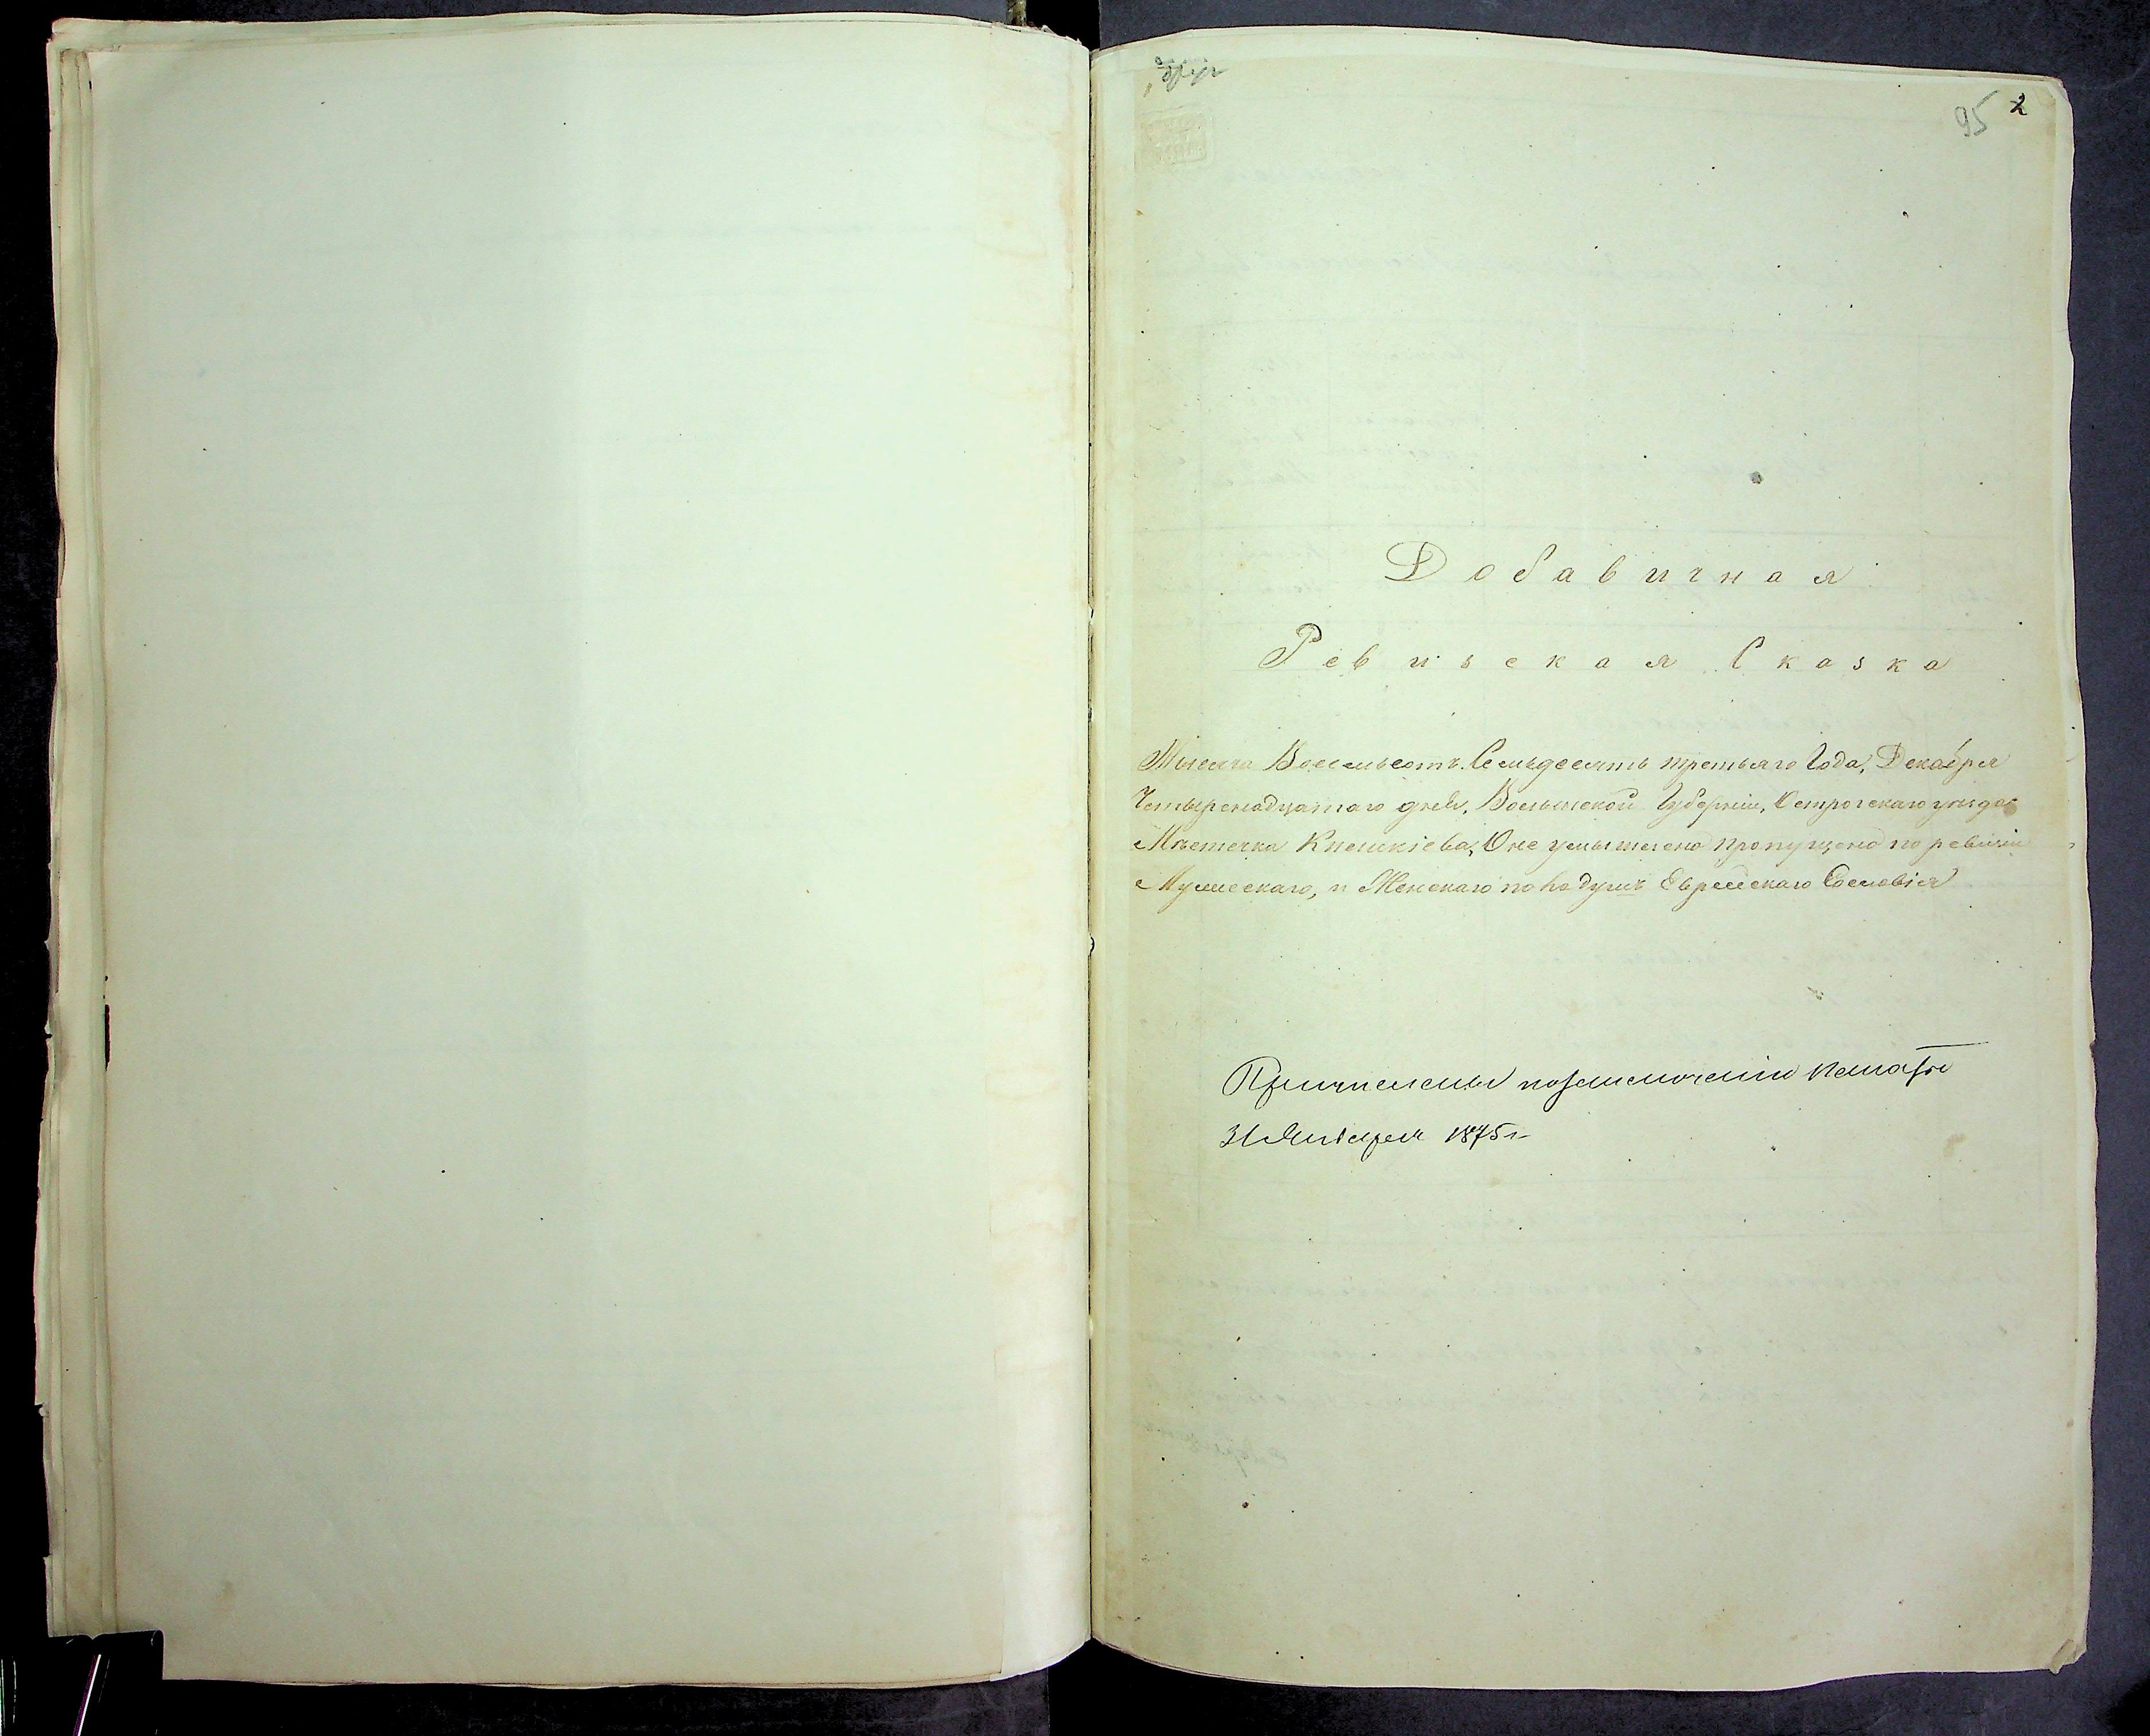 95 2
Добавичная
Ревизская Сказка
Тысяча Восемьсотъ Семьдесятъ третьяго Года, Декабря
Четыренадцатаго дня, Волынской Губерніи, Острогскаго уѣзда
Мѣстечка Кнешкіева, О не умышлено пропущено по ревизіи
Мужескаго, и Женскаго пола душъ Еврейскаго Сословія
Причислены
31 Января 1875 г.